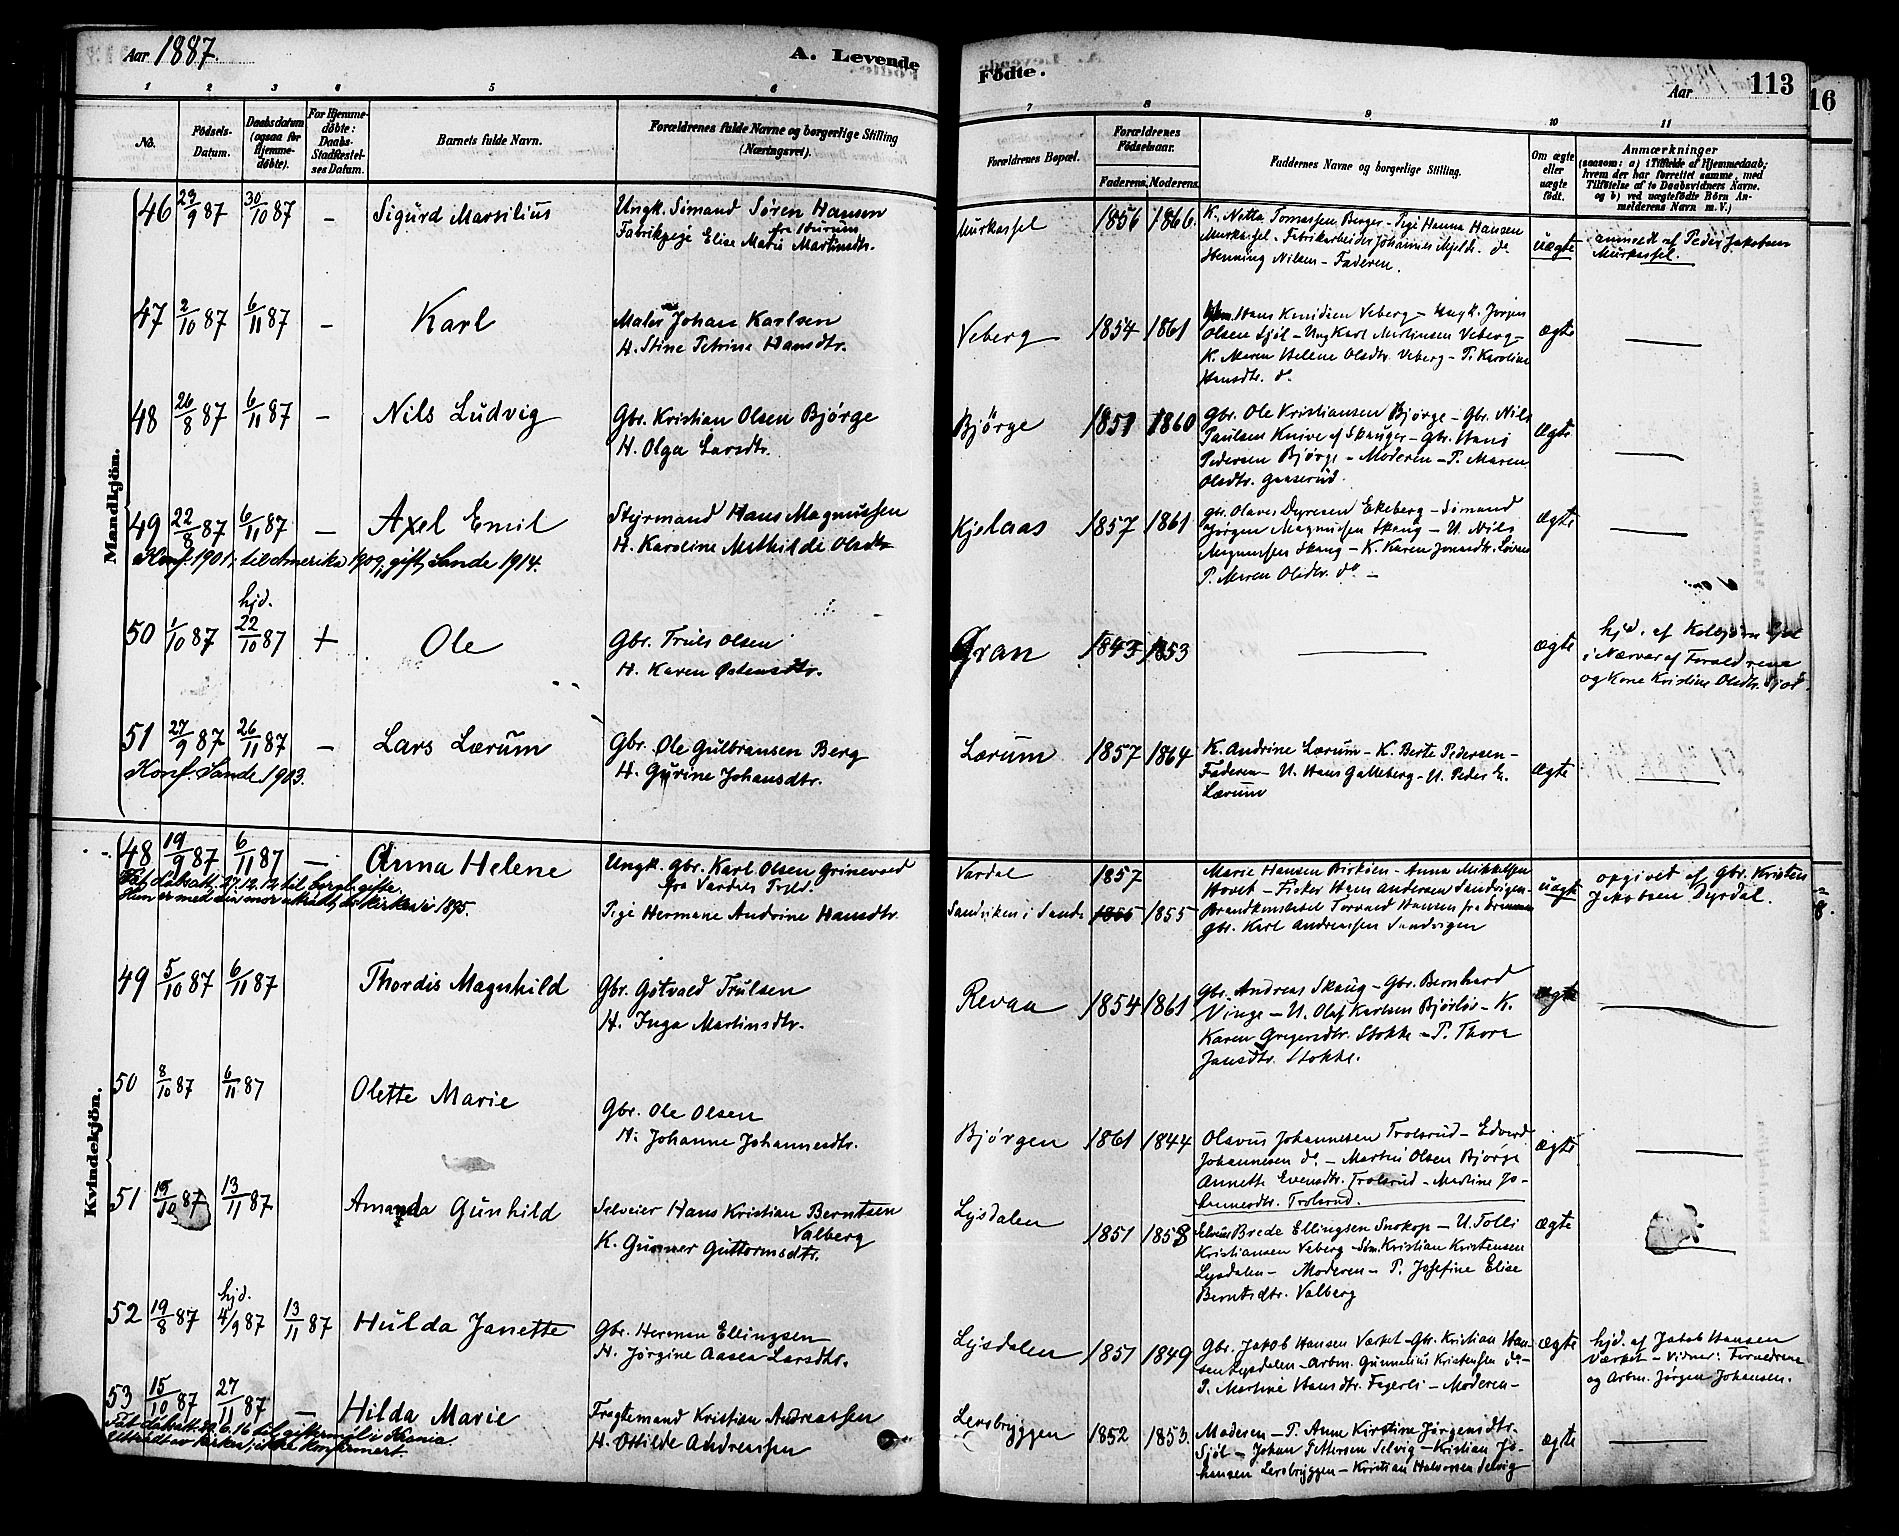 Aar 1887.
A. Levende
Fødte.
Aar
113
16
1 2 3 4 5 6
7 8 9 10 11
No.
Fødsels-
Datum.
Daabsdatum
(ogsaa for
Hjemme-
døbte).
For Hjemme-
døbte:
Daabs-
Stadfæstel-
ses Datum.
Barnets fulde Navn.
Forældrenes fulde Navne og borgerlige Stilling
(Næringsvei).
Forældrenes Bopæl.
Forældrenes
Fødselsaar.
Faderens. Moderens.
Faddernes Navne og borgerlige Stilling.
Om ægte
eller
uægte
født.
Anmærkninger
(saasom: a) i Tilfælde af Hjemmedaab;
hvem der har forrettet samme, med
Tilføielse af to Daabsvidners Navne.
og b) ved uægtefødte Børn An-
melderens Navn m. V.)
Mandkjön.
46 23/9 87 30/10 87 – Sigurd Marsilius
Ungk. Simand Søren Hansen
fra Hurum
Fabrikpige Elise Marie Martinsdtr.
Murkassel 1856 1866.
K. Netta Tomassen Berger – Pige Hanna Hansen
Murkassel – Fabrikarbeider Johannes Mjeldt. do
Henning Nilsen – Faderen.
uægte
anmeldt af Peder Jakobsen
Murkassel.
47 2/10 87 6/11 87 – Karl
Maler Johan Karlsen
H. Stine Petrine Hansdtr.
Veberg 1854 1861
Gbm. Hans Knudsen Veberg – Ungk. Jørgen
Olsen Sjøl – Ung Karl Martinsen Veberg –
K. Maren Helene Olsdtr. Veberg – P. Karoline
Hansdtr. do
ægte
48 26/8 87 6/11 87 – Nils Ludvig
Gbr. Kristian Olsen Bjørge
H. Olga Larsdtr.
Bjørge 1851 1860
Gbr. Ole Kristiansen Bjørge – Gbr. Nils
Paulsen Knive af Skauger – Gbr. Hans
Pedersen Bjørge – Moderen – P. Maren
Olsdtr. Gaaserud.
ægte
49 22/8 87 6/11 87 – Axel Emil
Styrmand Hans Magnussen
H. Karoline Mathilde Olsdtr
Konf. 1901; til Amerika 1909; gift, Sande 1914.
Kjelaas 1857 1861
gbr. Olaves Dyresen Ekeberg – Simand
Jørgen Magnussen Skaug – U. Nils
Magnussen Skaug – K. Karen Jonasdtr. Løvaas
P. Maren Olsdtr. do –
ægte
50 1/10 87 hjd. 22/10 87 + Ole
Gbr. Truls Olsen
H. Karen Østensdtr.
Gran 1843 1853
ægte
hjd. af Kolbjørn
i Nærvær af Forældrene
og Kone Kristine Olsdtr.
51 27/9 87 26/11 87 – Lars Lærum
Gbr. Ole Gulbransen Berg
H. Gurine Johansdtr.
Konf. Sande 1903.
Lærum 1857 1864
K. Andrine Lærum – K. Berte Pedersen –
Faderen – U. Hans Galleberg – U. Peder E.
Lærum
ægte
Kvindekjön.
48 19/9 87 6/11 87 – Anna Helene
Ungk. Gbr. Karl Olsen Grinevold
fra Vardal
Pige Hermane Andrine Hansdtr.
Fik dåbsatt. 27.12.12 til borgl. gifte.
Hun er med sin mor utrådt av kirken i 1895.
Vardal 1857
Sandviken i Sande 1855 1855
Marie Hansen Birkåsen – Anna Mikkelsen
Hovet – Fisker Hans Andersen Sandvigen –
Brandkonstabel Torvald Hansen fra Drammen
gbr. Karl Andreassen Sandvigen
uægte
opgivet af Gbr. Kristen
Jakobsen Dyrdal.
49 5/10 87 6/11 87 Thordis Magnhild
Gbr. Gotvald Trulsen
H. Inga Martinsdtr.
Revaa 1854 1861
Gbr. Andreas Skaug – Gbr. Bernhard
Vinge – U. Olaf Karlsen Bjørlo – K.
Karen Gregersdtr. Stokke – P. Thora
Jansdtr. Stokke.
ægte
50 8/10 87 6/11 87 Olette Marie
Gbr. Ole Olsen
H. Johanne Johannesdtr.
Bjørgen 1861 1844
Olavus Johannesen Trolsrud – Edvard
Johannesen do – Martin Olsen Bjørge
Annette Evensdtr. Trolsrud – Martine Jo-
hannesdtr. Trolsrud.
ægte
51 15/10 87 13/11 87 Amanda Gunhild
Selveier Hans Kristian Berntsen
Valberg
K. Gunner Guttormsdtr.
Lysdalen 1851 1858
Selveier Brede Ellingsen Snekop – U. Tolli
Kristiansen Veberg – Sbm. Kristian Kristensen
Lysdalen – Moderen – P. Josefine Elise
Berntsdtr. Valberg
ægte
52 19/8 87 hjd. 4/9 87 13/11 87 Hulda Janette
Gbr. Herman Ellingsen
H. Jørgine Aasea Larsdtr.
Lysdalen 1851 1849
Gbr. Jakob Hansen Værket – Gbr. Kristian Han-
sen Lysdalen – Arbm. Gunnelius Kristensen do –
P. Martine Hansdtr. Fagerli – Moderen –
ægte
hjd. af Jakob Hansen
Værket – Vidner: Forældrene
og Arbm. Jørgen Johansen.
53 15/10 87 27/11 87 – Hilda Marie
Fragtemand Kristian Andreassen
H. Otilde Andreassen
Fik dåbsatt. 6.16 til giftermål i Krania.
Utrådt av kirken; ikke konfirmert.
Lersbryggen 1852 1853.
Moderen – P. Anne Kirstine Jørgensdtr.
Sjøl – Johan Pettersen Selvig – Kristian Jo-
hansen Lersbryggen – Kristian Halvorsen Selvig
ægte